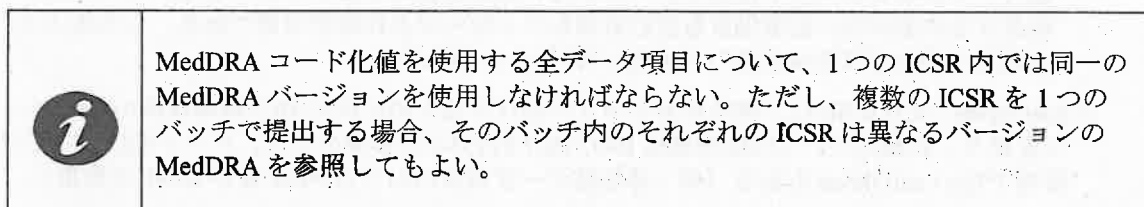 MedDRA コード化値を使用する全データ項目について、1つの ICSR 内では同一の
MedDRA バージョンを使用しなければならない。ただし、複数の ICSR を 1 つの
バッチで提出する場合、そのバッチ内のそれぞれの ICSR は異なるバージョンの
MedDRA を参照してもよい。